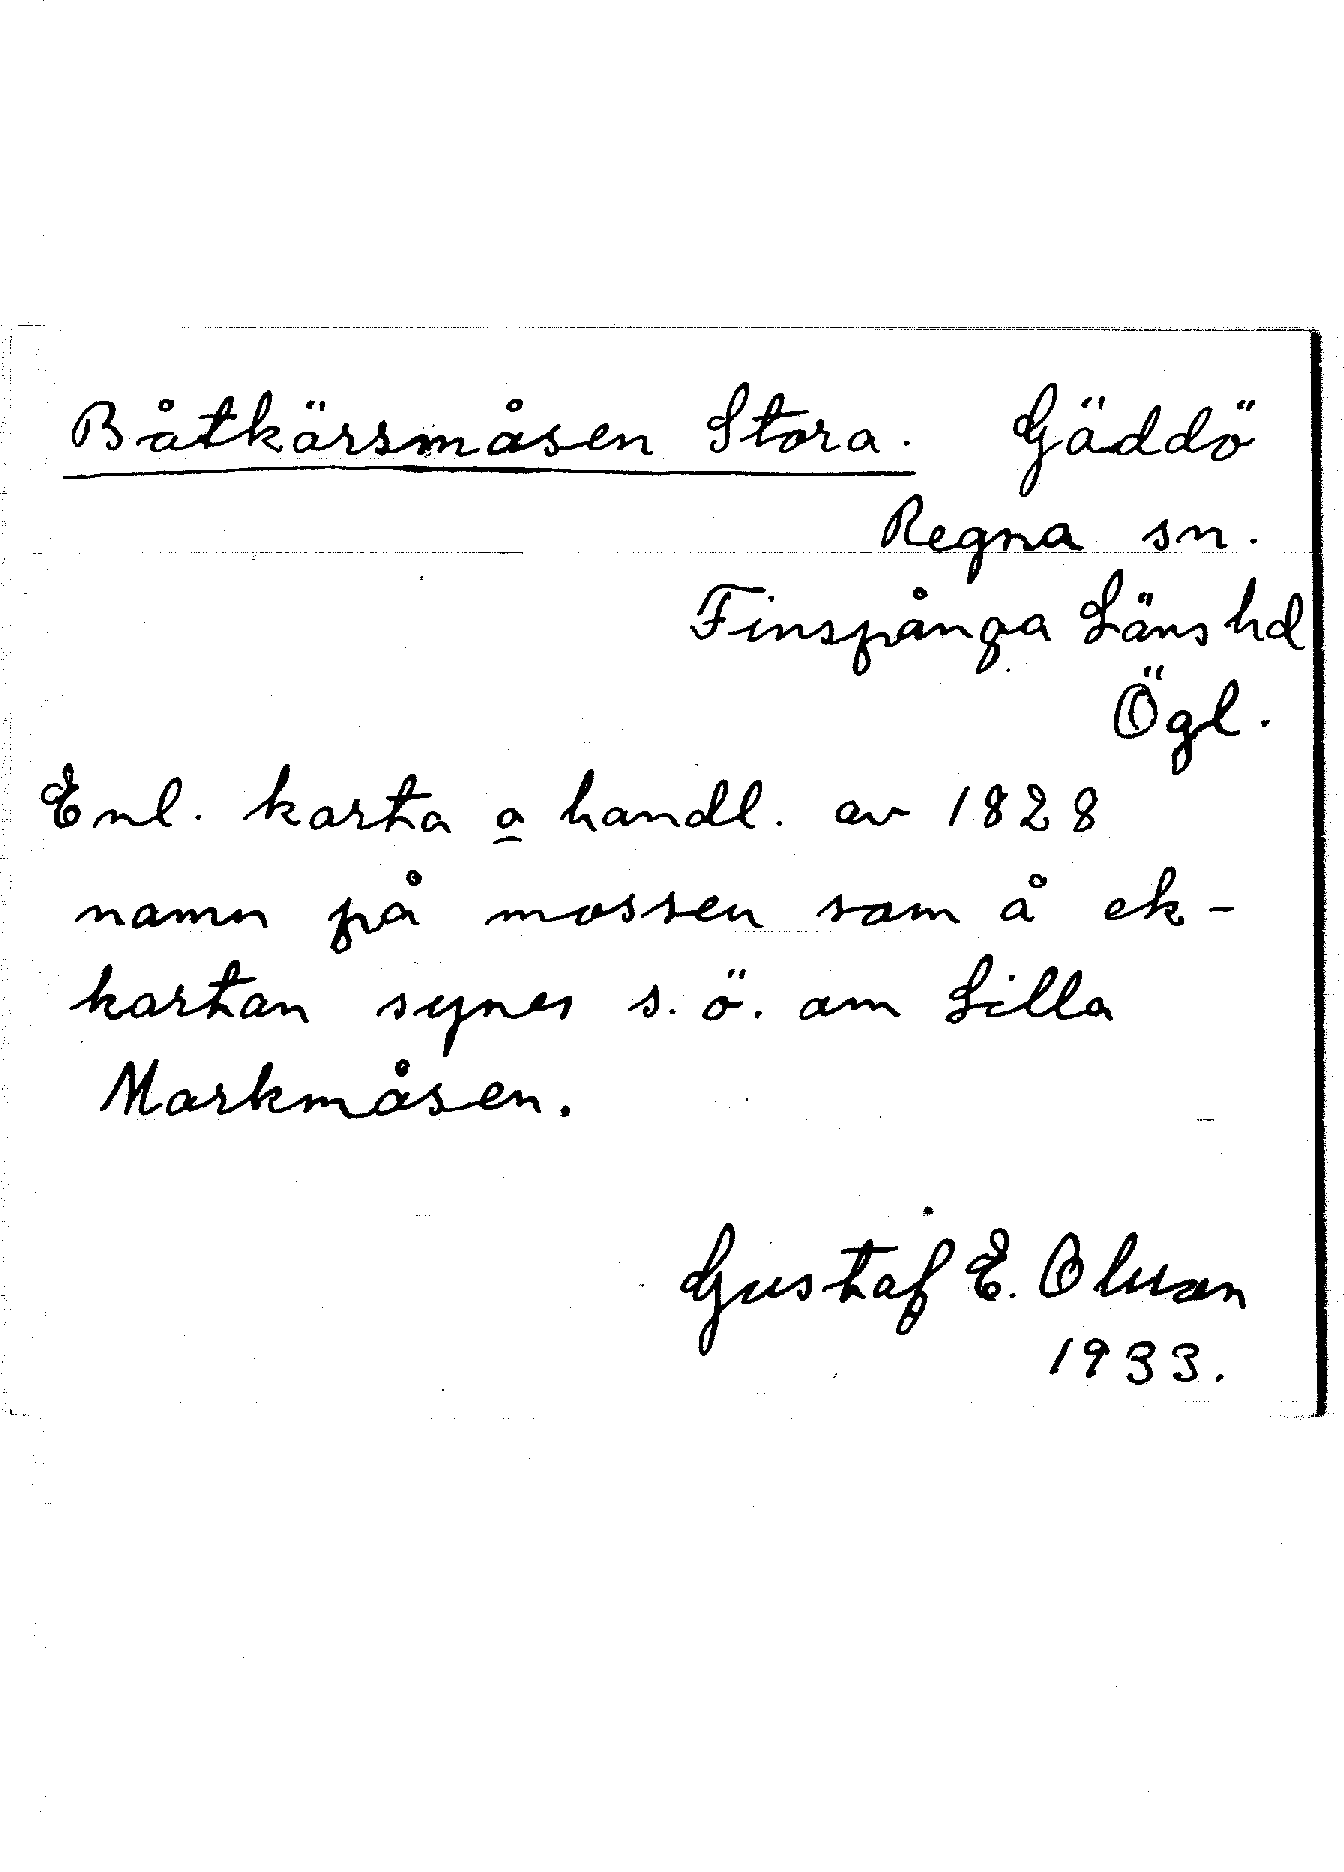 Båtkärsmåsen Stora. Gäddö
Regna sn.
Finspånga Läns hd
Ögl.
Enl. karta o handl. av 1828
namn på mossen som å ek-
kartan synes s.ö. om Lilla
Markmåsen.
Gustaf E. Olsson
1933.